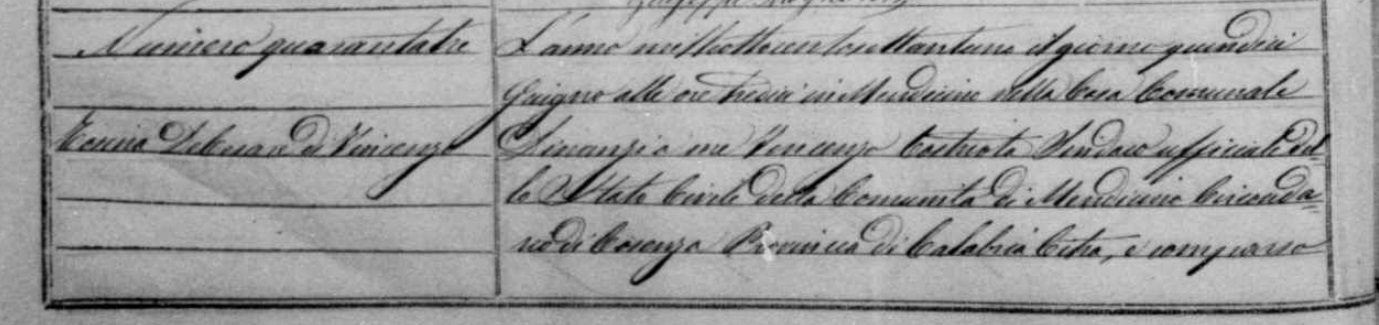 Numero quarantatre
L'anno milleottocentosettantuno il giorno quindici
Giugno alle ore tredici in Mendicino nella Casa Comunale
Rosina DeCesare di Vincenzo
Dinanzi a me Vincenzo Castriota Sindaco ufficiale del-
lo Stato Civile della Comunità di Mendicino Circonda=
rio di Cosenza Provincia di Calabria Citra, è comparso